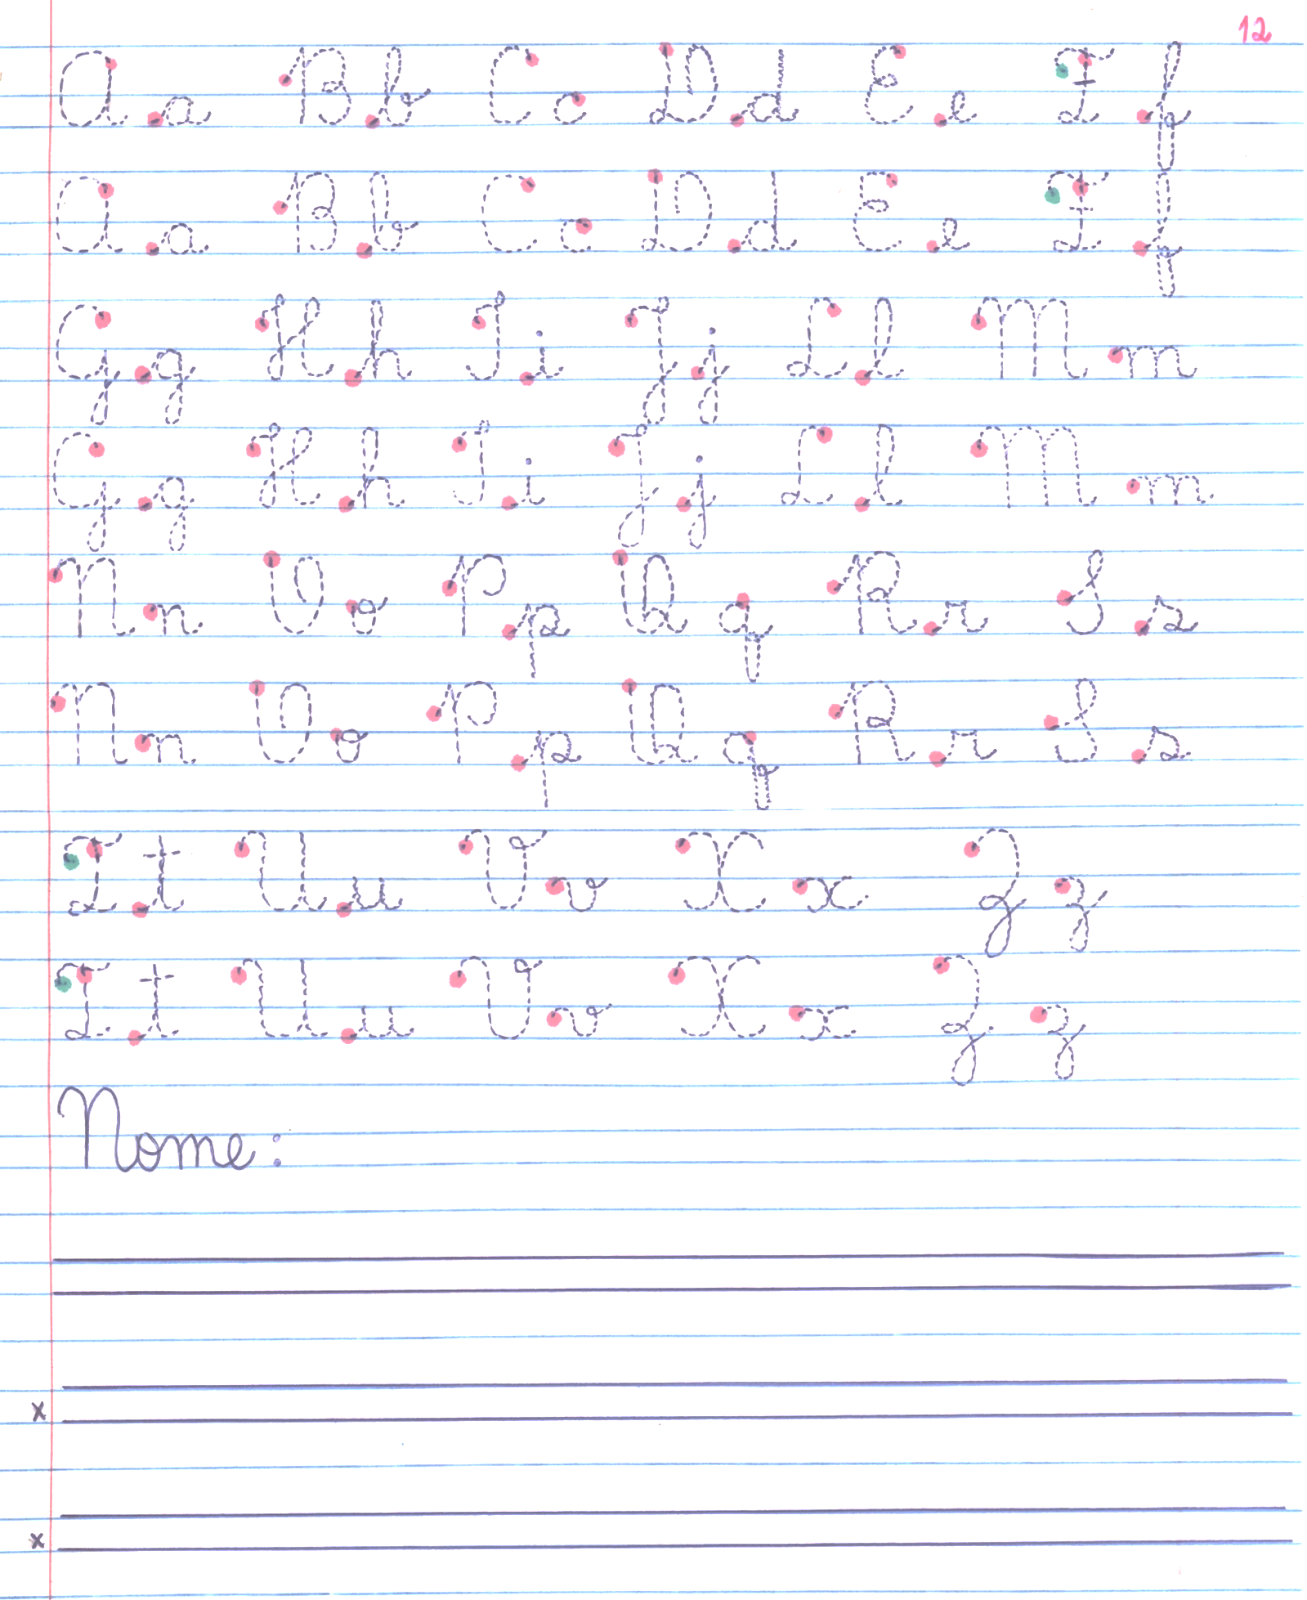 12
A a B b C c D d E e F f
A a B b C c D d E e F f
G g H h I i J j L l M m
G g H h I i J j L l M m
N n O o P p Q q R r S s
N n O o P p Q q R r S s
T t U u V v X x Z z
T t U u V v X x Z z
Nome:
x
x